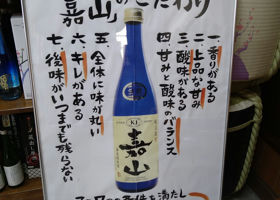 嘉山のこだわり
一、香りがある
二、上品な甘み
三、酸味がある
四、甘みと酸味のバランス
五、全体に味が丸い
六、キレがある
七、後味がいつまでも残らない
KJ
嘉山
条件を満たし